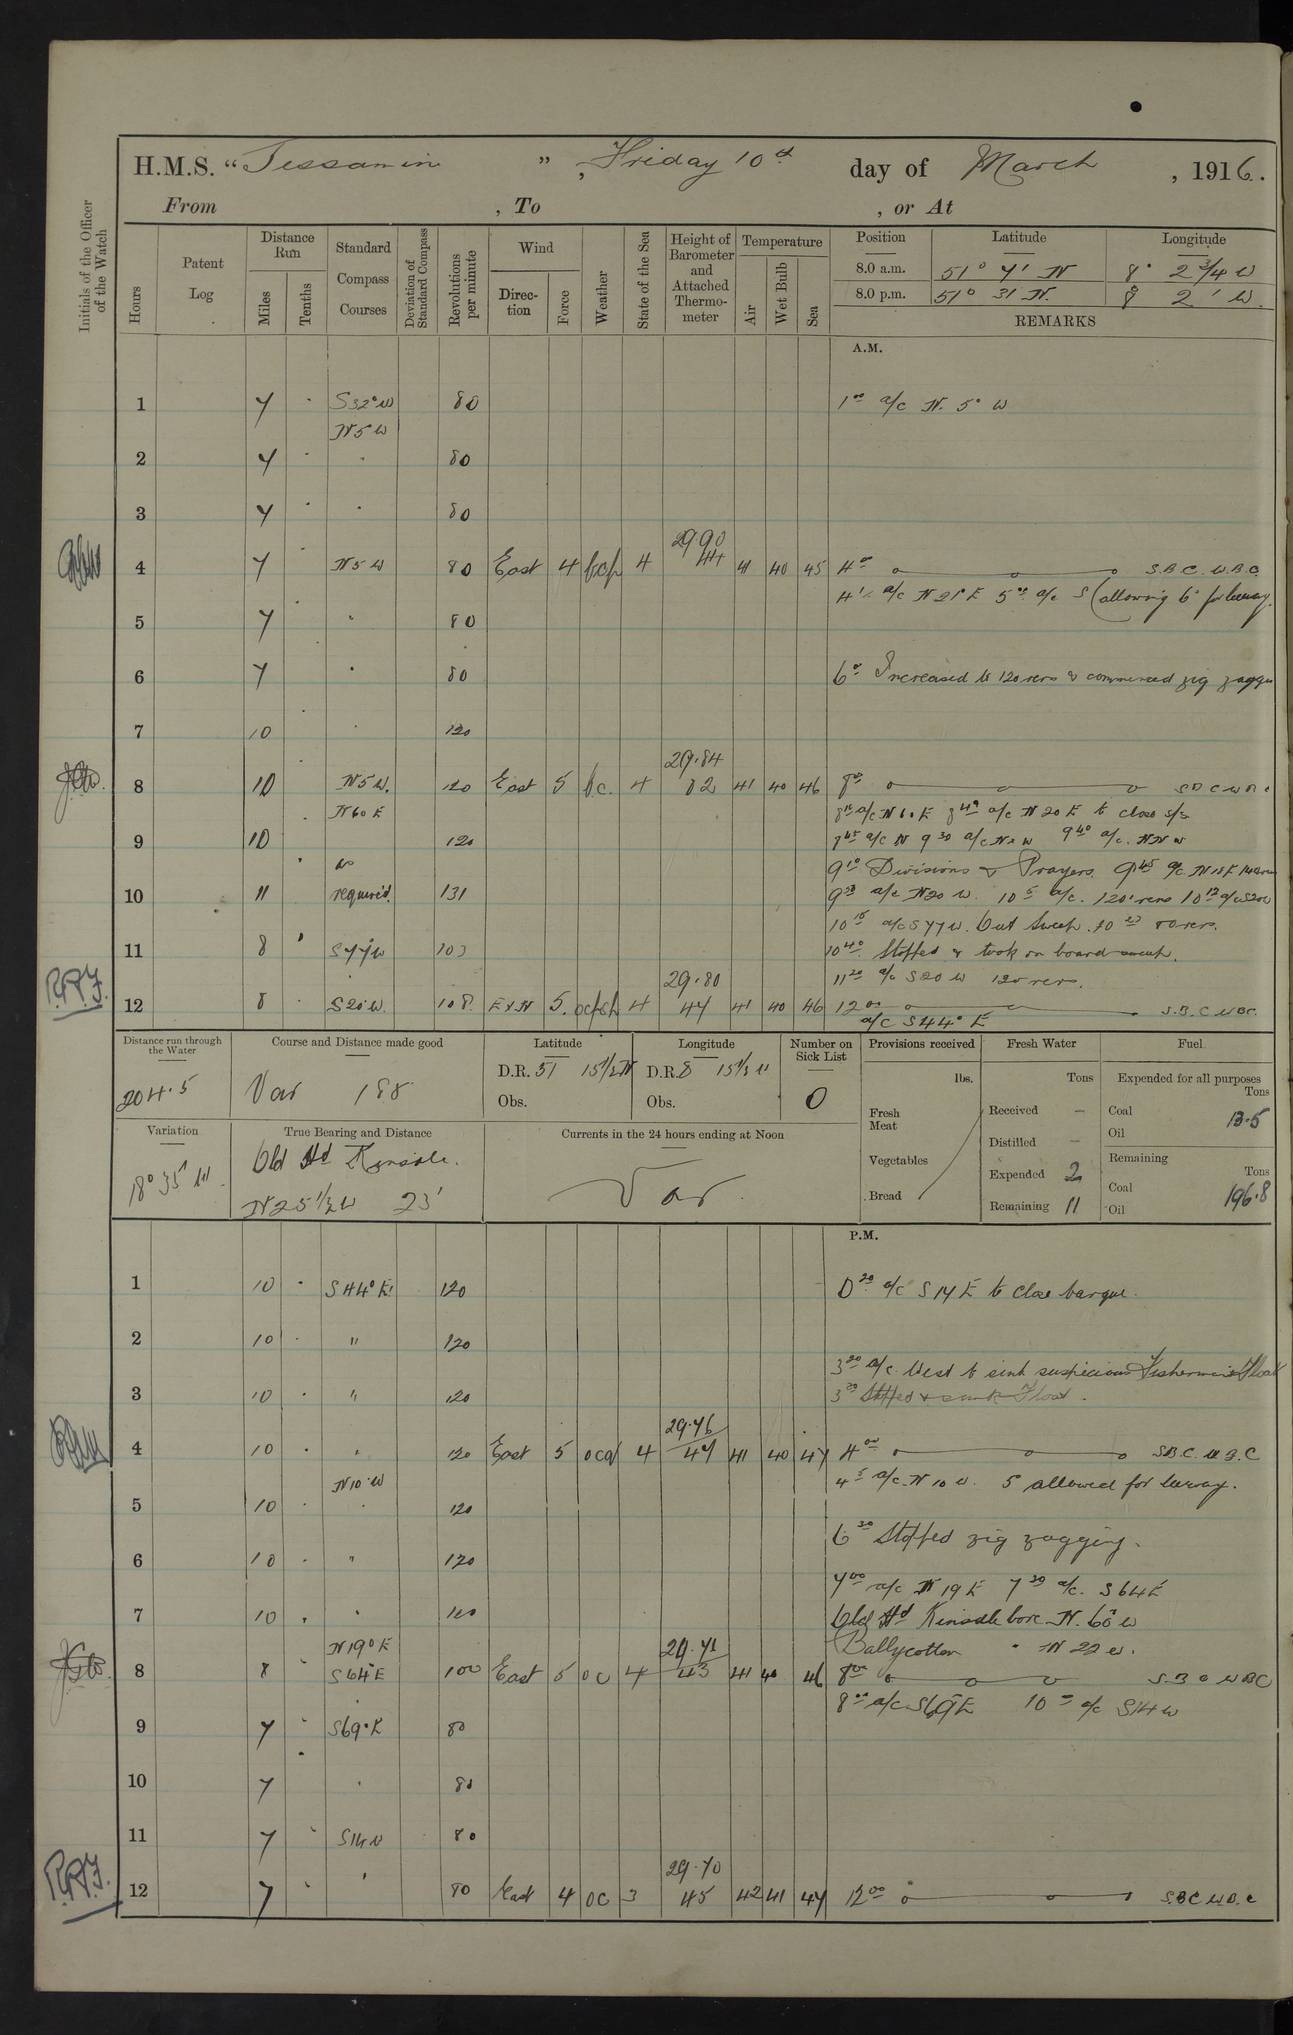 H.M.S. "Jessamin", Friday 10th day of March, 1916.
From , To , or At
Initials of the Officer of the Watch
Hours
Patent Log
Distance Run
Miles
Tenths
Standard Compass Courses
Deviation of Standard Compass
Revolutions per minute
Wind
Direction
Force
Weather
State of the Sea
Height of Barometer and Attached Thermometer
Temperature
Air
Wet Bulb
Sea
Position Latitude Longitude
8.0 a.m. 51° 7' N 8° 2 3/4 W
8.0 p.m. 51° 31 N. 8 2' W.
REMARKS
A.M.
1 7 S32°W 80 1 00 a/c N. 5° W
N5W
2 7 " 80
3 7 " 80
29.90
4 7 N5W 80 East 4 bcp 4 44 41 40 45 4 00 S.B.C. W.B.C.
a/c N21°E 5 00 a/c S (allowing 6° for leeway.
5 7 " 80
6 7 " 80 6 0 Increased to 120 revs & commenced zig
7 10 " 120
29.84
8 10 N5W. 120 East 5 b.c. 4 82 41 40 46 8 00
N60E a/c N60E a/c N20E to close s/s
9 10 120 8 45 a/c N 9 30 a/c 9 40 a/c. NNW
as 9 10 Divisions & Prayers. 9 45 a/c
10 11 required. 131 a/c N20W. 10 5 a/c. 120 revs
10 15 a/c S77W. Out Sweep. 80 revs.
11 8 S77W 103 10 40 Stopped & took on board sweep.
29.80 11 20 a/c S20W 120 revs.
R.R.J. 12 8 S20W. 108 ExN 5. 4 47 41 40 46 12 00 S.B.C. W.B.C.
a/c S44°E
Distance run through the Water
204.5
Course and Distance made good
Var 188
Latitude
D.R. 51 15 1/2 N
Obs.
Longitude
D.R. 8 15 1/2 W
Obs.
Number on Sick List
0
Provisions received
lbs.
Fresh Meat
Vegetables
Bread
Fresh Water
Tons
Received -
Distilled -
Expended 2
Remaining 11
Fuel
Expended for all purposes
Tons
Coal 13.5
Oil
Remaining
Tons
Coal 196.8
Oil
Variation
18° 35' W.
True Bearing and Distance
Old Hd Kinsale.
N25 1/2 W 23'
Currents in the 24 hours ending at Noon
Var.
P.M.
1 10 S44°E 120 0 20 a/c S14E to close barque.
2 10 " 120
3 20 a/c West to sink suspicious Fisherman's Float
3 10 " 120 Stopped & sunk Float.
29.76
4 10 " 120 East 5 4 47 41 40 47 4 00 S.B.C. W.B.C
N10W 4 5 a/c N10W. 5 allowed for leeway.
5 10 " 120
6 30 Stopped zig zagging.
6 10 " 120
7 00 a/c N19E 7 30 a/c. S64E
7 10 " 120 Old Hd Kinsale bore N. 60° W
N19°E 29.71 Ballycotton " N 22 W.
8 8 S64E 100 East 5 oc 4 43 41 40 46 8 00 S.B.C W.B.C
8 00 a/c S69E 10 00 a/c S14W
9 7 S69°E 80
10 7 " 80
11 7 S14W 80
29.70
R.R.J. 12 7 " 80 East 4 oc 3 45 42 41 47 12 00 S.B.C W.B.C